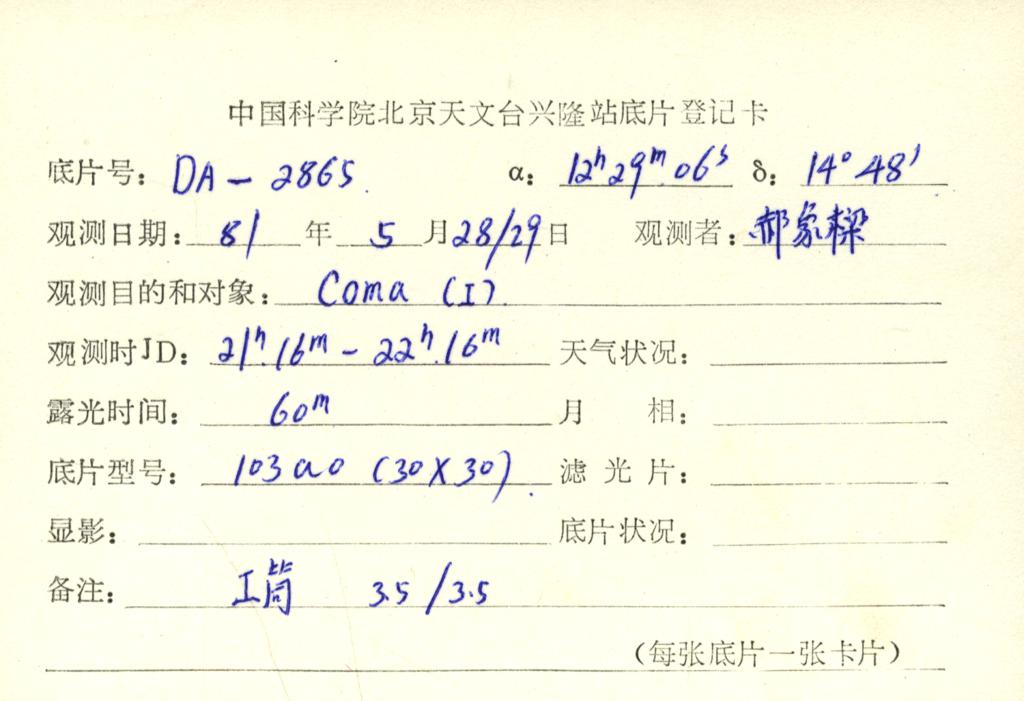 中国科学院北京天文台兴隆站底片登记卡
底片号: DA - 2865. α: 12ʰ29ᵐ.06ˢ δ: 14° 48'
观测日期: 81 年 5 月 28/29 日 观测者: 郝象樑
观测目的和对象: Coma (I)
观测时JD: 21ʰ.16ᵐ - 22ʰ.16ᵐ 天气状况:
露光时间: 60ᵐ 月 相:
底片型号: 103aO (30X30). 滤光片:
显影: 底片状况:
备注: 工筒 3.5 / 3.5
(每张底片一张卡片)